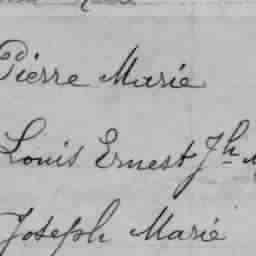 Pierre Marie
Louis Ernest Jh
Joseph Marie